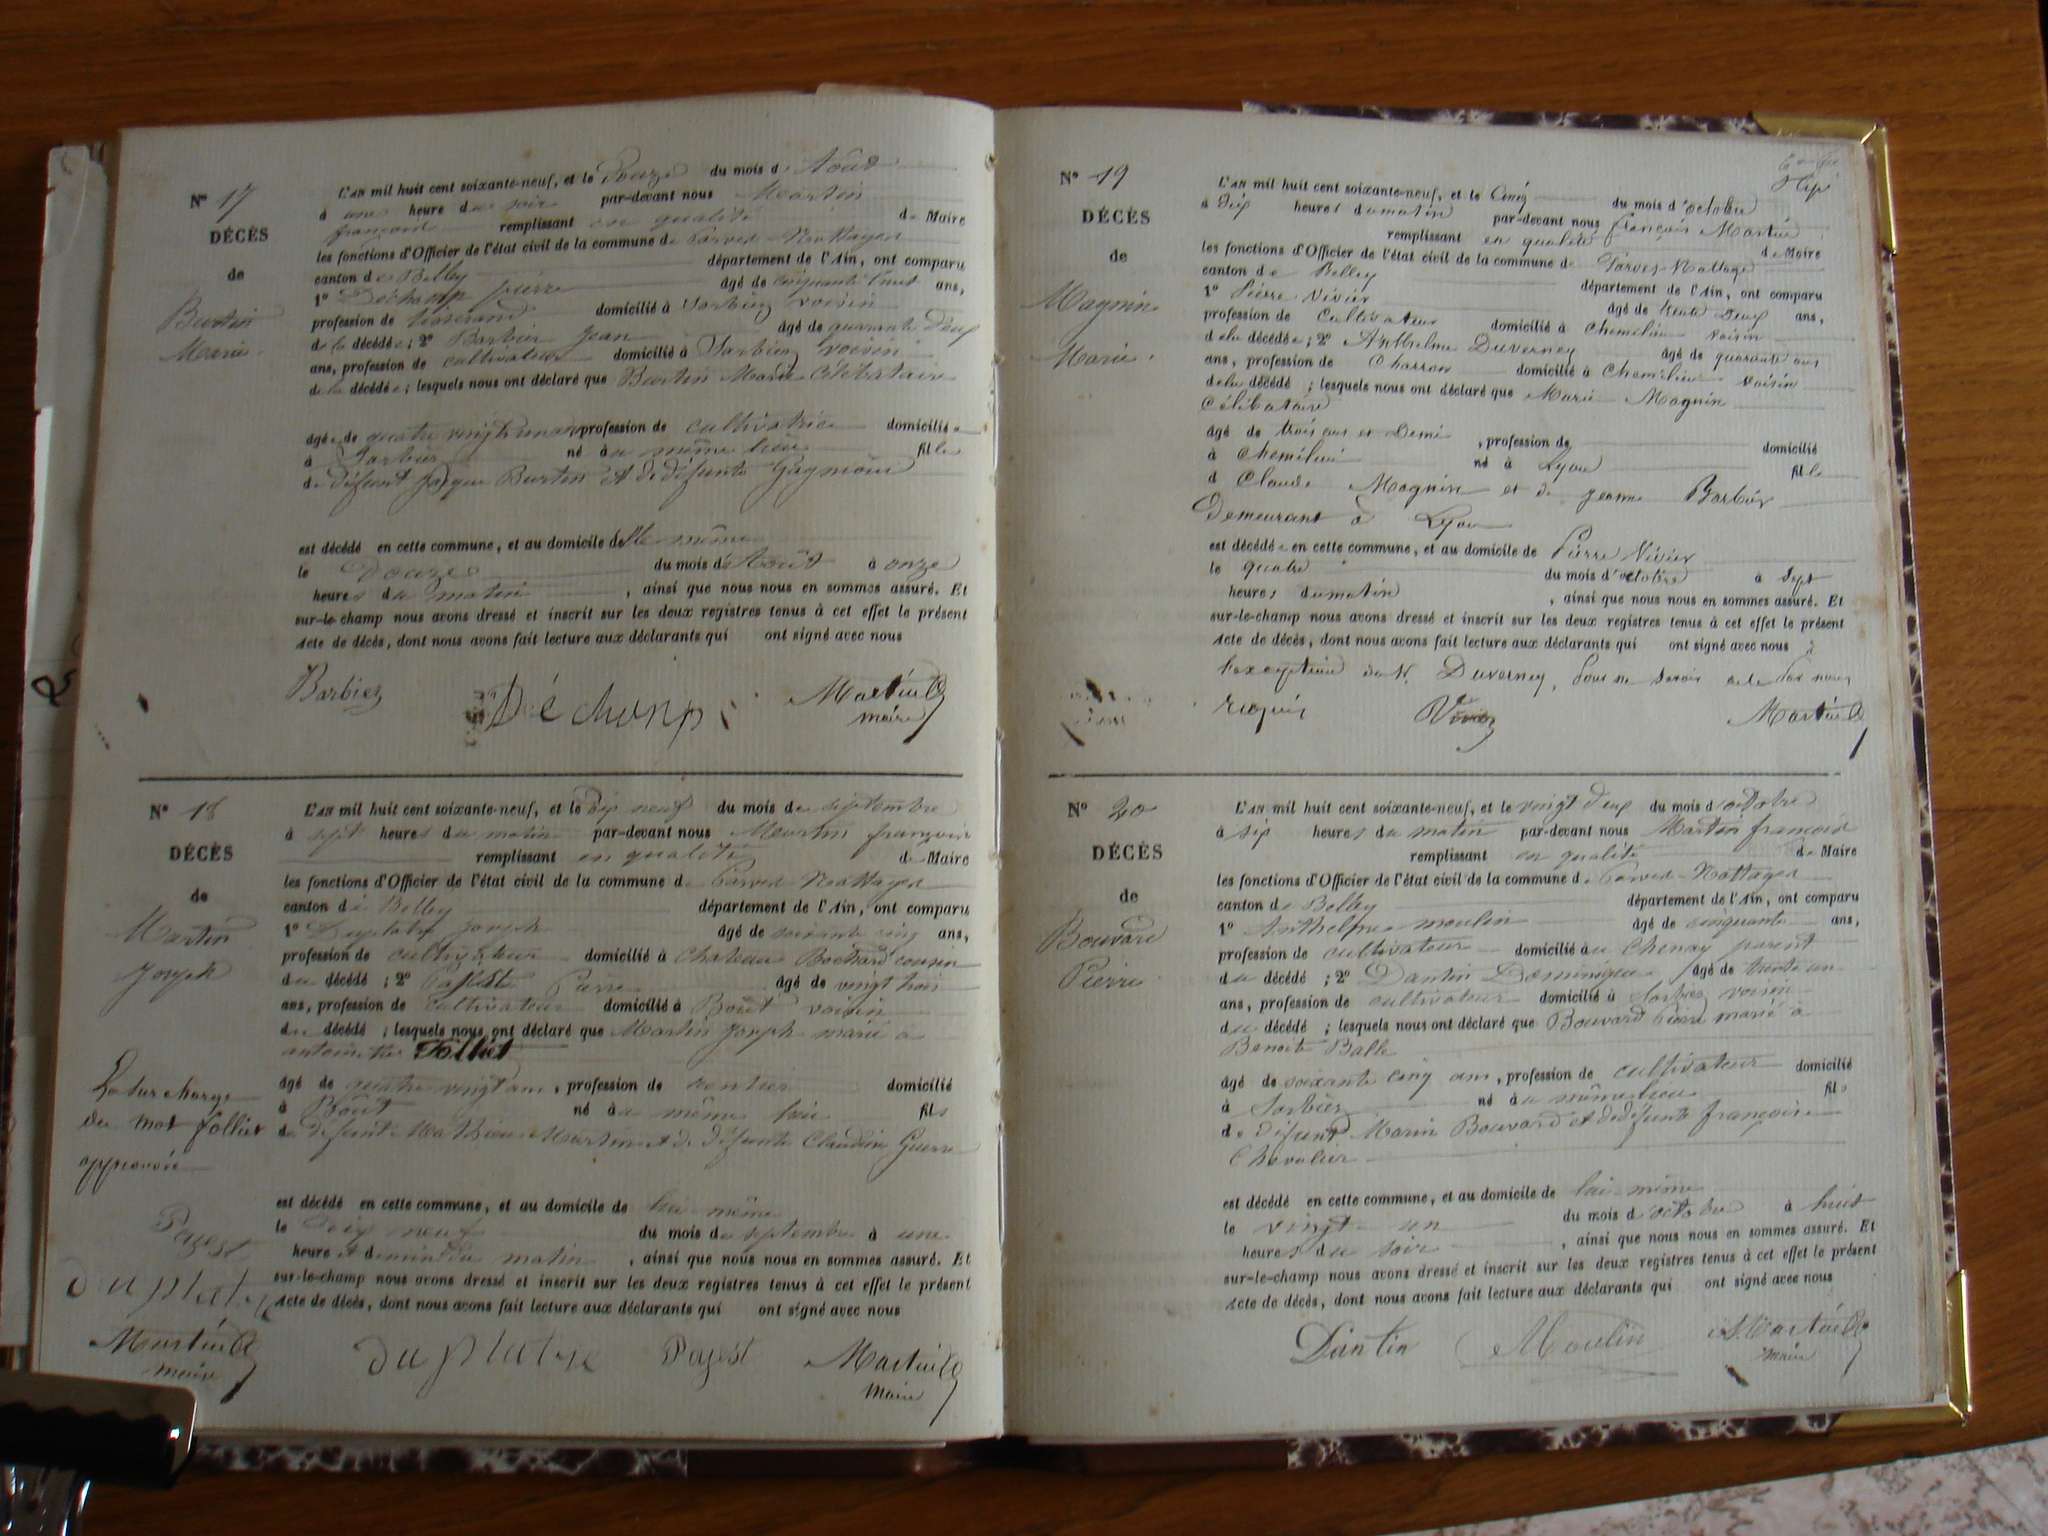 N° 17
DÉCÈS
de
Burtin
Marie
L'AN mil huit cent soixante-neuf, et le Douze du mois d Août
à une heure du soir par-devant nous Martin
françois remplissant en qualité de Maire
les fonctions d'Officier de l'état civil de la commune de Parves-Nattages
canton de Belley département de l'Ain, ont comparu
1° Déchamp pierre âgé de cinquante huit ans,
profession de tisserand domicilié à Sorbier voisin
de la décédée; 2° Barbier Jean âgé de quarante deux
ans, profession de cultivateur domicilié à Sorbier voisin
de la décédée; lesquels nous ont déclaré que Burtin Marie Célibataire
âgée de quatre vingt profession de cultivatrice domiciliée
à Sorbier né au même lieu fille
de défunt Jacque Burtin et de défunte
est décédé en cette commune, et au domicile d'elle même
le douze du mois d'Août à onze
heures du matin, ainsi que nous nous en sommes assuré. Et
sur-le-champ nous avons dressé et inscrit sur les deux registres tenus à cet effet le présent
Acte de décès, dont nous avons fait lecture aux déclarants qui ont signé avec nous
Barbier Déchamp Martin
maire
N° 18
DÉCÈS
de
Martin
Joseph
L'AN mil huit cent soixante-neuf, et le Dix neuf du mois de septembre
à sept heures du matin par-devant nous Martin françois
remplissant en qualité de Maire
les fonctions d'Officier de l'état civil de la commune de Parves-Nattages
canton de Belley département de l'Ain, ont comparu
1° Duplatre Joseph âgé de soixante cinq ans,
profession de cultivateur domicilié à Chateau Bochard cousin
du décédé; 2° Pierre âgé de vingt trois
ans, profession de cultivateur domicilié à Boût voisin
du décédé; lesquels nous ont déclaré que Martin Joseph marié à
antoinette Folliet
âgé de quatre vingt ans, profession de rentier domicilié
à Boût né au même lieu fils
de défunt Mathieu Martin et de défunte Claudine Guerre
est décédé en cette commune, et au domicile de lui même
le Dix neuf du mois de septembre à une
heure et demie du matin, ainsi que nous nous en sommes assuré. Et
sur-le-champ nous avons dressé et inscrit sur les deux registres tenus à cet effet le présent
Acte de décès, dont nous avons fait lecture aux déclarants qui ont signé avec nous
La surcharge
du mot folliet
approuvée
Payest
duplatre
Martin
maire
duplatre Payest Martin
maire
N° 19
DÉCÈS
de
Magnin
Marie
L'AN mil huit cent soixante-neuf, et le Cinq du mois d'octobre
à Dix heures du matin par-devant nous François Martin
remplissant en qualité de Maire
les fonctions d'Officier de l'état civil de la commune de Parves-Nattage
canton de Belley département de l'Ain, ont comparu
1° Pierre Vivier âgé de trente Deux ans,
profession de Cultivateur domicilié à Chemilieu voisin
de la décédée; 2° Anthelme Duverney âgé de quarante ans
ans, profession de Charron domicilié à Chemilieu voisin
de la décédé; lesquels nous ont déclaré que Marie Magnin
Célibataire
âgé de trois ans et Demi, profession de domicilié
à Chemilieu né à Lyon fille
d Claude Magnin et de Jeanne Barbier
Demeurant à Lyon
est décédée en cette commune, et au domicile de Pierre Vivier
le quatre du mois d'octobre à Sept
heures du matin, ainsi que nous nous en sommes assuré. Et
sur-le-champ nous avons dressé et inscrit sur les deux registres tenus à cet effet le présent
Acte de décès, dont nous avons fait lecture aux déclarants qui ont signé avec nous à
l'exception de Duverney, pour ne savoir de ce par nous
requis Vivier Martin
N° 20
DÉCÈS
de
Bouvard
Pierre
L'AN mil huit cent soixante-neuf, et le vingt deux du mois d'octobre
à six heures du matin par-devant nous Martin françois
remplissant en qualité de Maire
les fonctions d'Officier de l'état civil de la commune de Parves-Nattages
canton de Belley département de l'Ain, ont comparu
1° Anthelme moulin âgé de cinquante ans,
profession de cultivateur domicilié au Chenay parent
du décédé; 2° Dantin Dominique âgé de trente un
ans, profession de cultivateur domicilié à Sorbier voisin
du décédé; lesquels nous ont déclaré que Bouvard Pierre marié à
Benoite Balle
âgé de soixante cinq ans, profession de cultivateur domicilié
à Sorbier né au même lieu fils
de défunt Marin Bouvard et de défunte françoise
Chevalier
est décédé en cette commune, et au domicile de lui même
le vingt un du mois d'octobre à huit
heures du soir, ainsi que nous nous en sommes assuré. Et
sur-le-champ nous avons dressé et inscrit sur les deux registres tenus à cet effet le présent
Acte de décès, dont nous avons fait lecture aux déclarants qui ont signé avec nous
Dantin Moulin Martin
maire